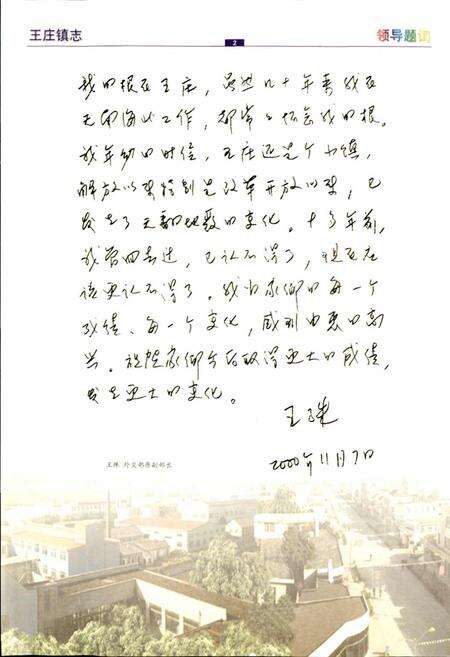 王庄镇志
2
领导题词
我的根在王庄，虽然几十年来我在
天南海北工作，却常常怀念我的根。
我年幼的时候，王庄还是个小镇，
解放以来特别是改革开放以来，已
发生了天翻地覆的变化。十多年前，
我曾回去过，已认不得了，现在应
该更认不得了。我为家乡的每一个
成绩、每一个变化，感到由衷的高
兴。祝愿家乡今后取得更大的成绩，
发生更大的变化。
王殊
2000年11月7日
王殊 外交部原副部长